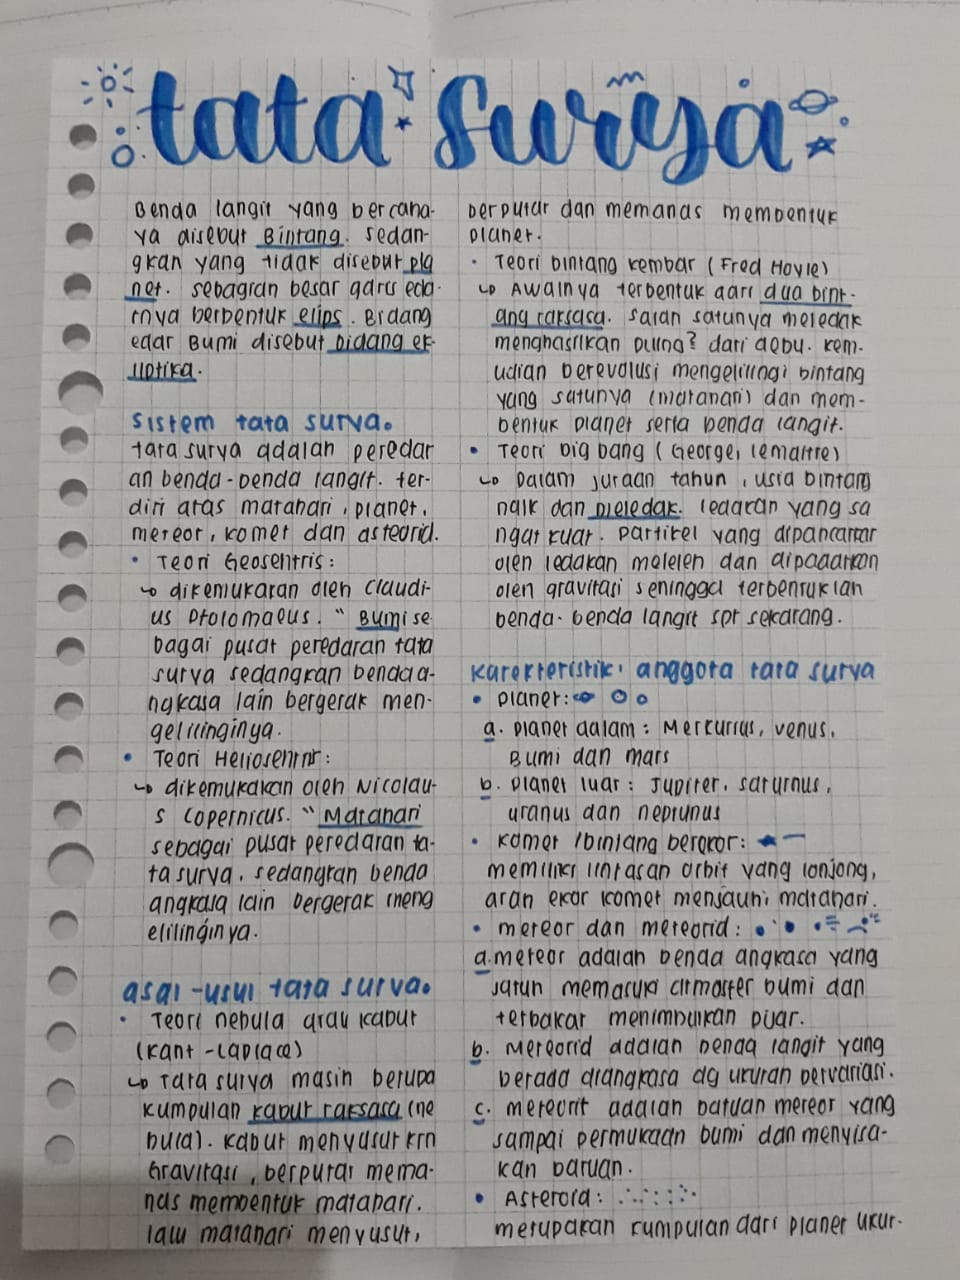 tata surya
Benda langit yang bercaha-
ya disebut Bintang. sedan-
gkan yang tidak disebut pla
net. sebagian besar garis eda-
rnya berbentuk elips. Bidang
edar Bumi disebut bidang ek-
liptika.
sistem tata surya.
tata surya adalah peredar
an benda-benda langit. ter-
diri atas matahari, planet,
meteor, komet dan asteorid.
• Teori Geosentris:
↳ dikemukakan oleh Claudi-
us Ptolomaeus. "Bumi se
bagai pusat peredaran tata
surya sedangkan benda a-
ngkasa lain bergerak men-
gelilinginya.
• Teori Heliosentris:
↳ dikemukakan oleh Nicolau-
s Copernicus. "Matahari
sebagai pusat peredaran ta-
ta surya. sedangkan benda
angkasa lain bergerak meng
elilinginya.
asal-usul tata surya.
• Teori nebula atau kabut
(Kant-Laplace)
↳ Tata surya masih berupa
kumpulan kabut raksasa (ne
bula). kabut menyusut krn
Gravitasi, berputar mema-
nas membentuk matahari.
lalu matahari menyusut,
berputar dan memanas membentuk
planet.
• Teori bintang kembar (Fred Hoyle)
↳ Awalnya terbentuk dari dua bint-
ang raksasa. salah satunya meledak
menghasilkan puing² dari debu. kem-
udian berevolusi mengelilingi bintang
yang satunya (matahari) dan mem-
bentuk planet serta benda langit.
• Teori big bang (George, lemaitre)
↳ Dalam jutaan tahun, usia bintang
naik dan meledak. ledakan yang sa
ngat kuat. Partikel yang dipancarkan
oleh ledakan meleleh dan dipadatkan
oleh gravitasi sehingga terbentuklah
benda-benda langit spt sekarang.
karekteristik, anggota tata surya
• planet:
a. planet dalam: Merkurius, venus,
Bumi dan mars
b. planet luar: Jupiter, saturnus,
uranus dan neptunus
• komet /bintang berekor:
memiliki lintasan orbit yang lonjong,
arah ekor komet menjauhi matahari.
• meteor dan meteorid:
a. meteor adalah benda angkasa yang
jatuh memasuki atmosfer bumi dan
terbakar menimbulkan pijar.
b. Meteorid adalah benda langit yang
berada diangkasa dg ukuran bervariasi.
c. meteorit adalah batuan meteor yang
sampai permukaan bumi dan menyisa-
kan batuan.
• Asteroid:
merupakan kumpulan dari planet ukur-